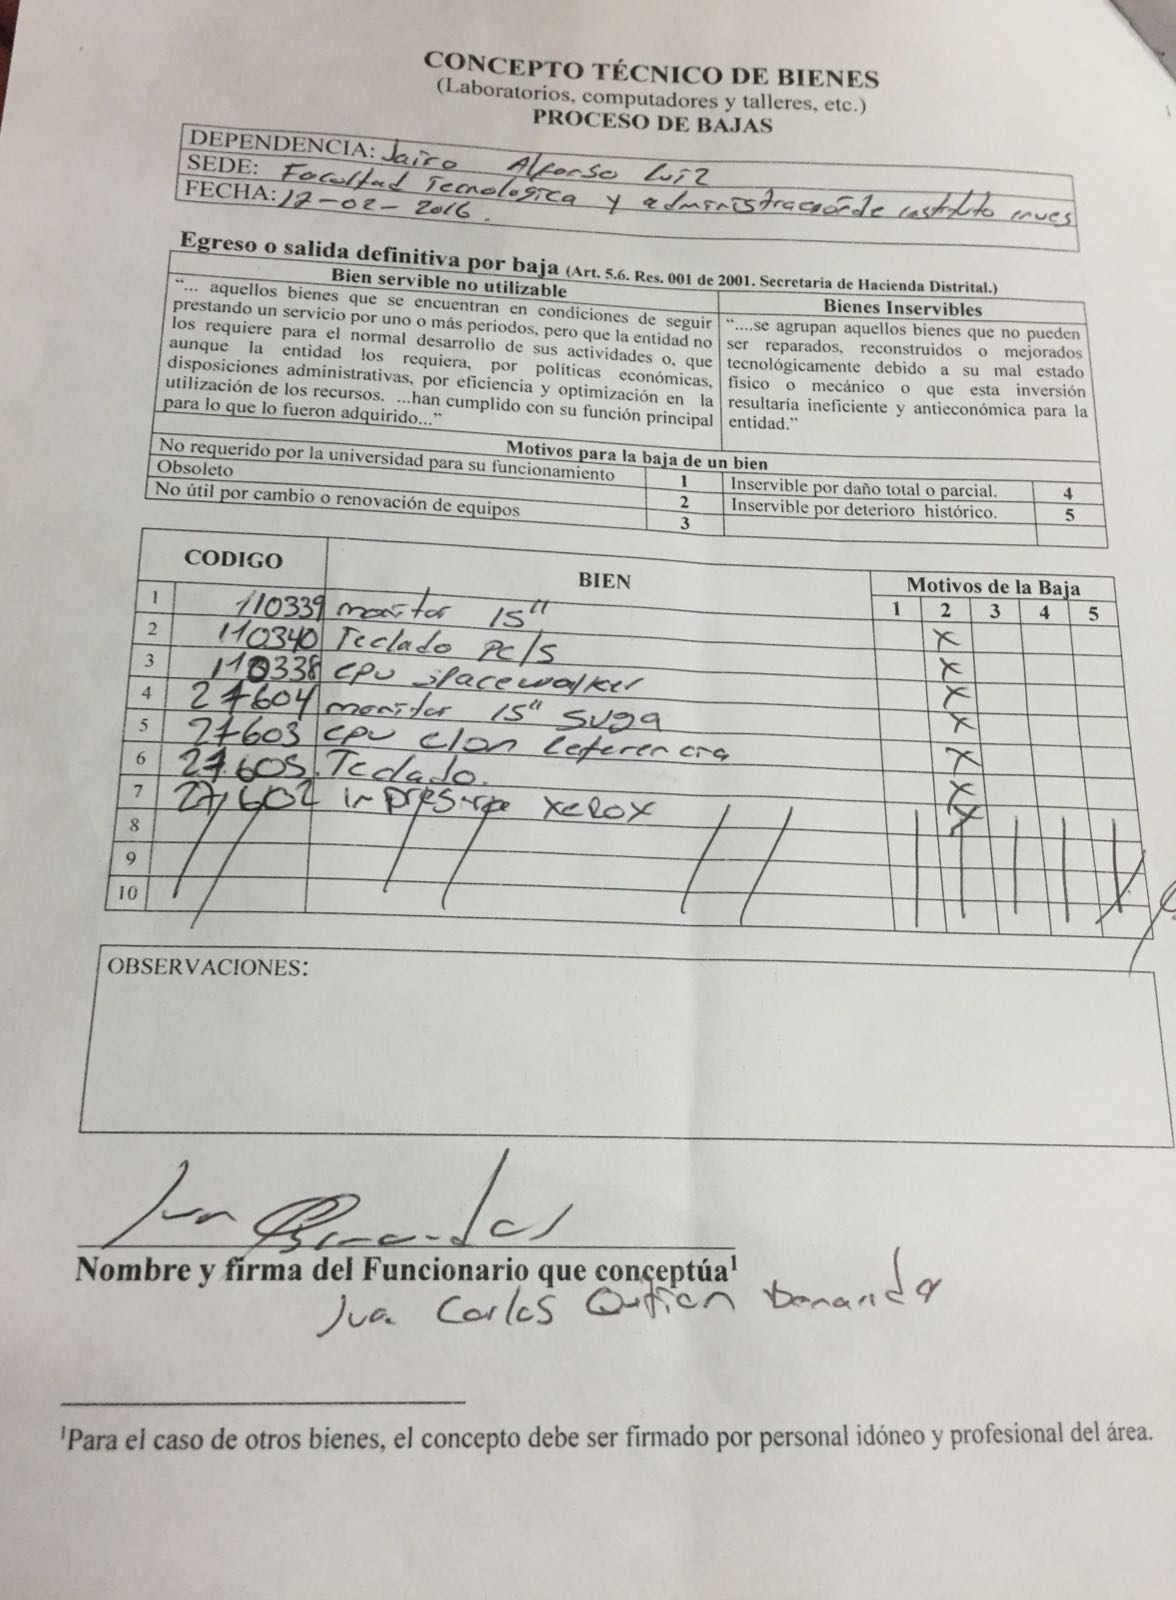 CONCEPTO TÉCNICO DE BIENES
(Laboratorios, computadores y talleres, etc.)
PROCESO DE BAJAS
DEPENDENCIA: Jairo Alfonso
SEDE: Facultad Tecnologica y administracion de instituto inves
FECHA: 17-02-2016.
Egreso o salida definitiva por baja (Art. 5.6. Res. 001 de 2001. Secretaria de Hacienda Distrital.)
Bien servible no utilizable
"... aquellos bienes que se encuentran en condiciones de seguir
prestando un servicio por uno o más periodos, pero que la entidad no
los requiere para el normal desarrollo de sus actividades o, que
aunque la entidad los requiera, por políticas económicas,
disposiciones administrativas, por eficiencia y optimización en la
utilización de los recursos. ...han cumplido con su función principal
para lo que lo fueron adquirido..."
Bienes Inservibles
"....se agrupan aquellos bienes que no pueden
ser reparados, reconstruidos o mejorados
tecnológicamente debido a su mal estado
físico o mecánico o que esta inversión
resultaría ineficiente y antieconómica para la
entidad."
Motivos para la baja de un bien
No requerido por la universidad para su funcionamiento 1 Inservible por daño total o parcial. 4
Obsoleto 2 Inservible por deterioro histórico. 5
No útil por cambio o renovación de equipos 3
CODIGO BIEN Motivos de la Baja
1 2 3 4 5
1 110339 monitor 15" x
2 110340 Teclado PC/S x
3 110338 cpu spacewalker x
4 27604 monitor 15" suga x
5 27603 cpu clon referencia x
6 27605. Teclado. x
7 27602 impresora xerox x
8
9
10
OBSERVACIONES:
Nombre y firma del Funcionario que conceptúa¹
Juan Carlos
¹Para el caso de otros bienes, el concepto debe ser firmado por personal idóneo y profesional del área.